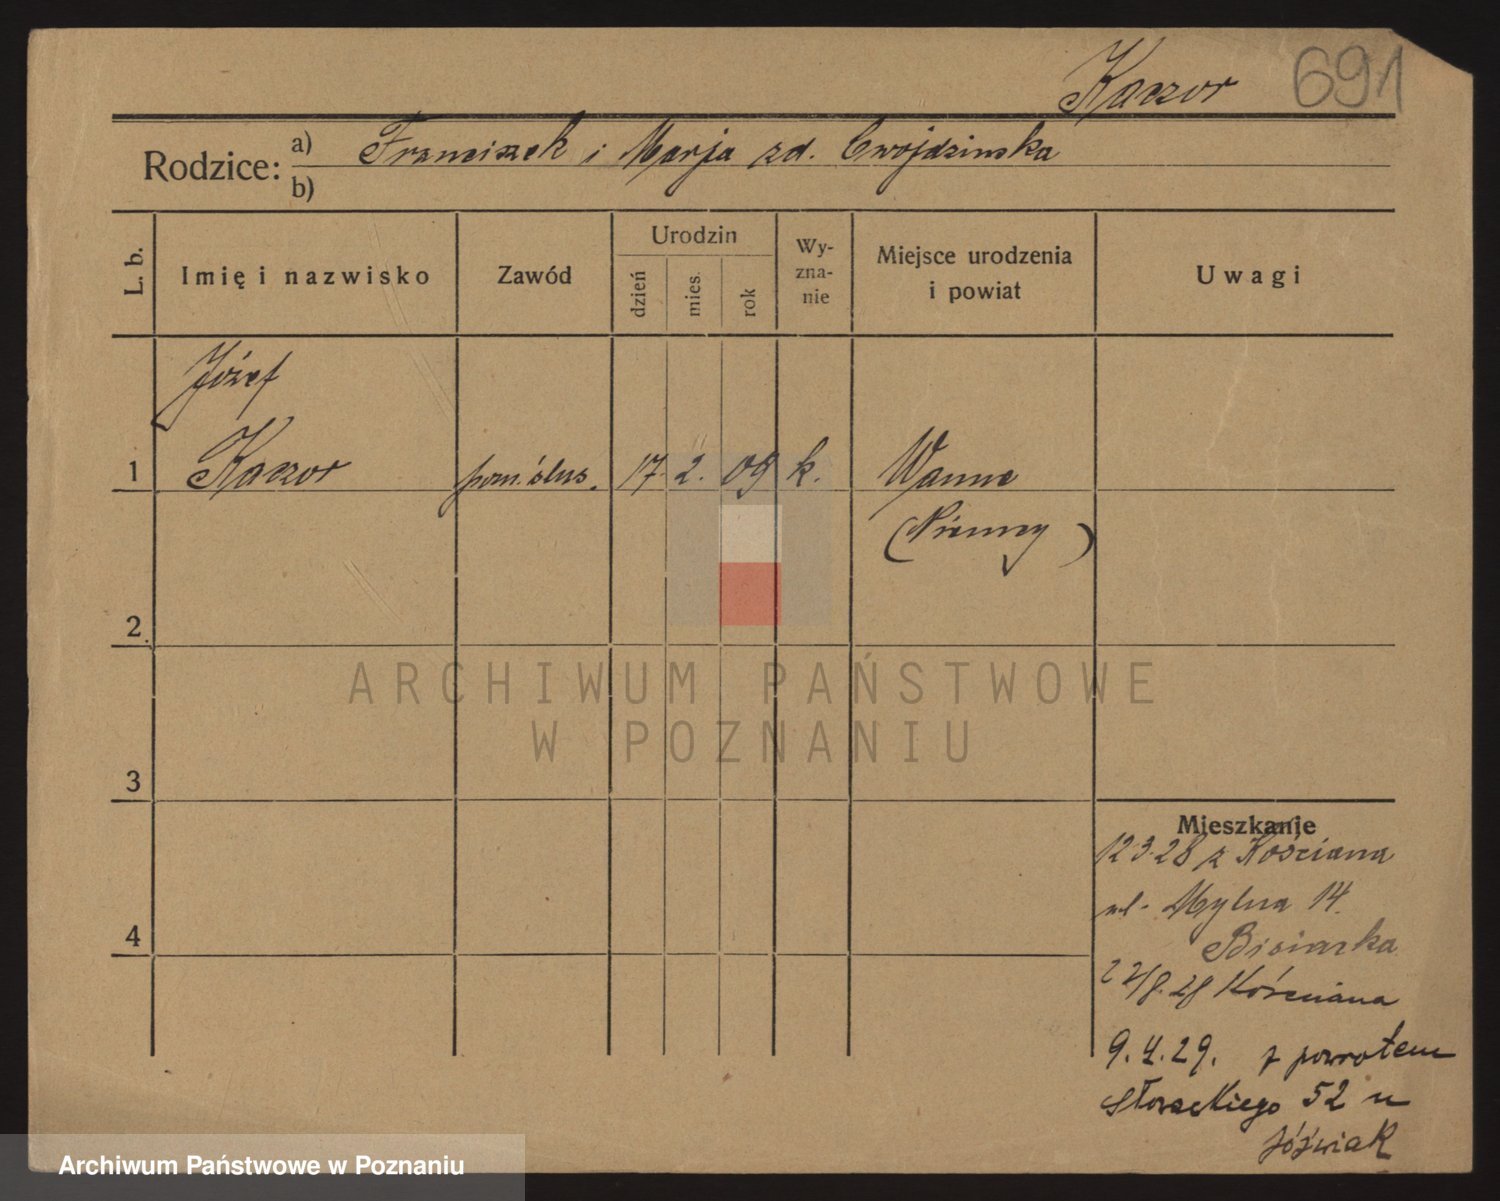 Kaczor 691
Rodzice:
a) Franciszek i Marja zd. Cwojdzinska
b)
L. b.
Imię i nazwisko
Zawód
Urodzin
dzień
mies.
rok
Wy-
zna-
nie
Miejsce urodzenia
i powiat
Uwagi
Józef
1 Kaczor pom. ślus. 17. 2. 09 k. Wanne
(Niemcy)
2
3
4
Mieszkanie
12.3.28 z Kościana
ul. Mylna 14.
22/8.28 Kościana
9.4.29. z powrotem
Słowackiego 52 u
Jóźwiak
ARCHIWUM PAŃSTWOWE
W POZNANIU
Archiwum Państwowe w Poznaniu